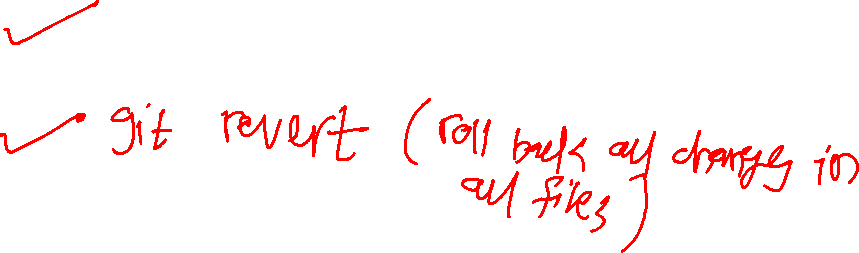 git revert (roll back all changes in
all files)